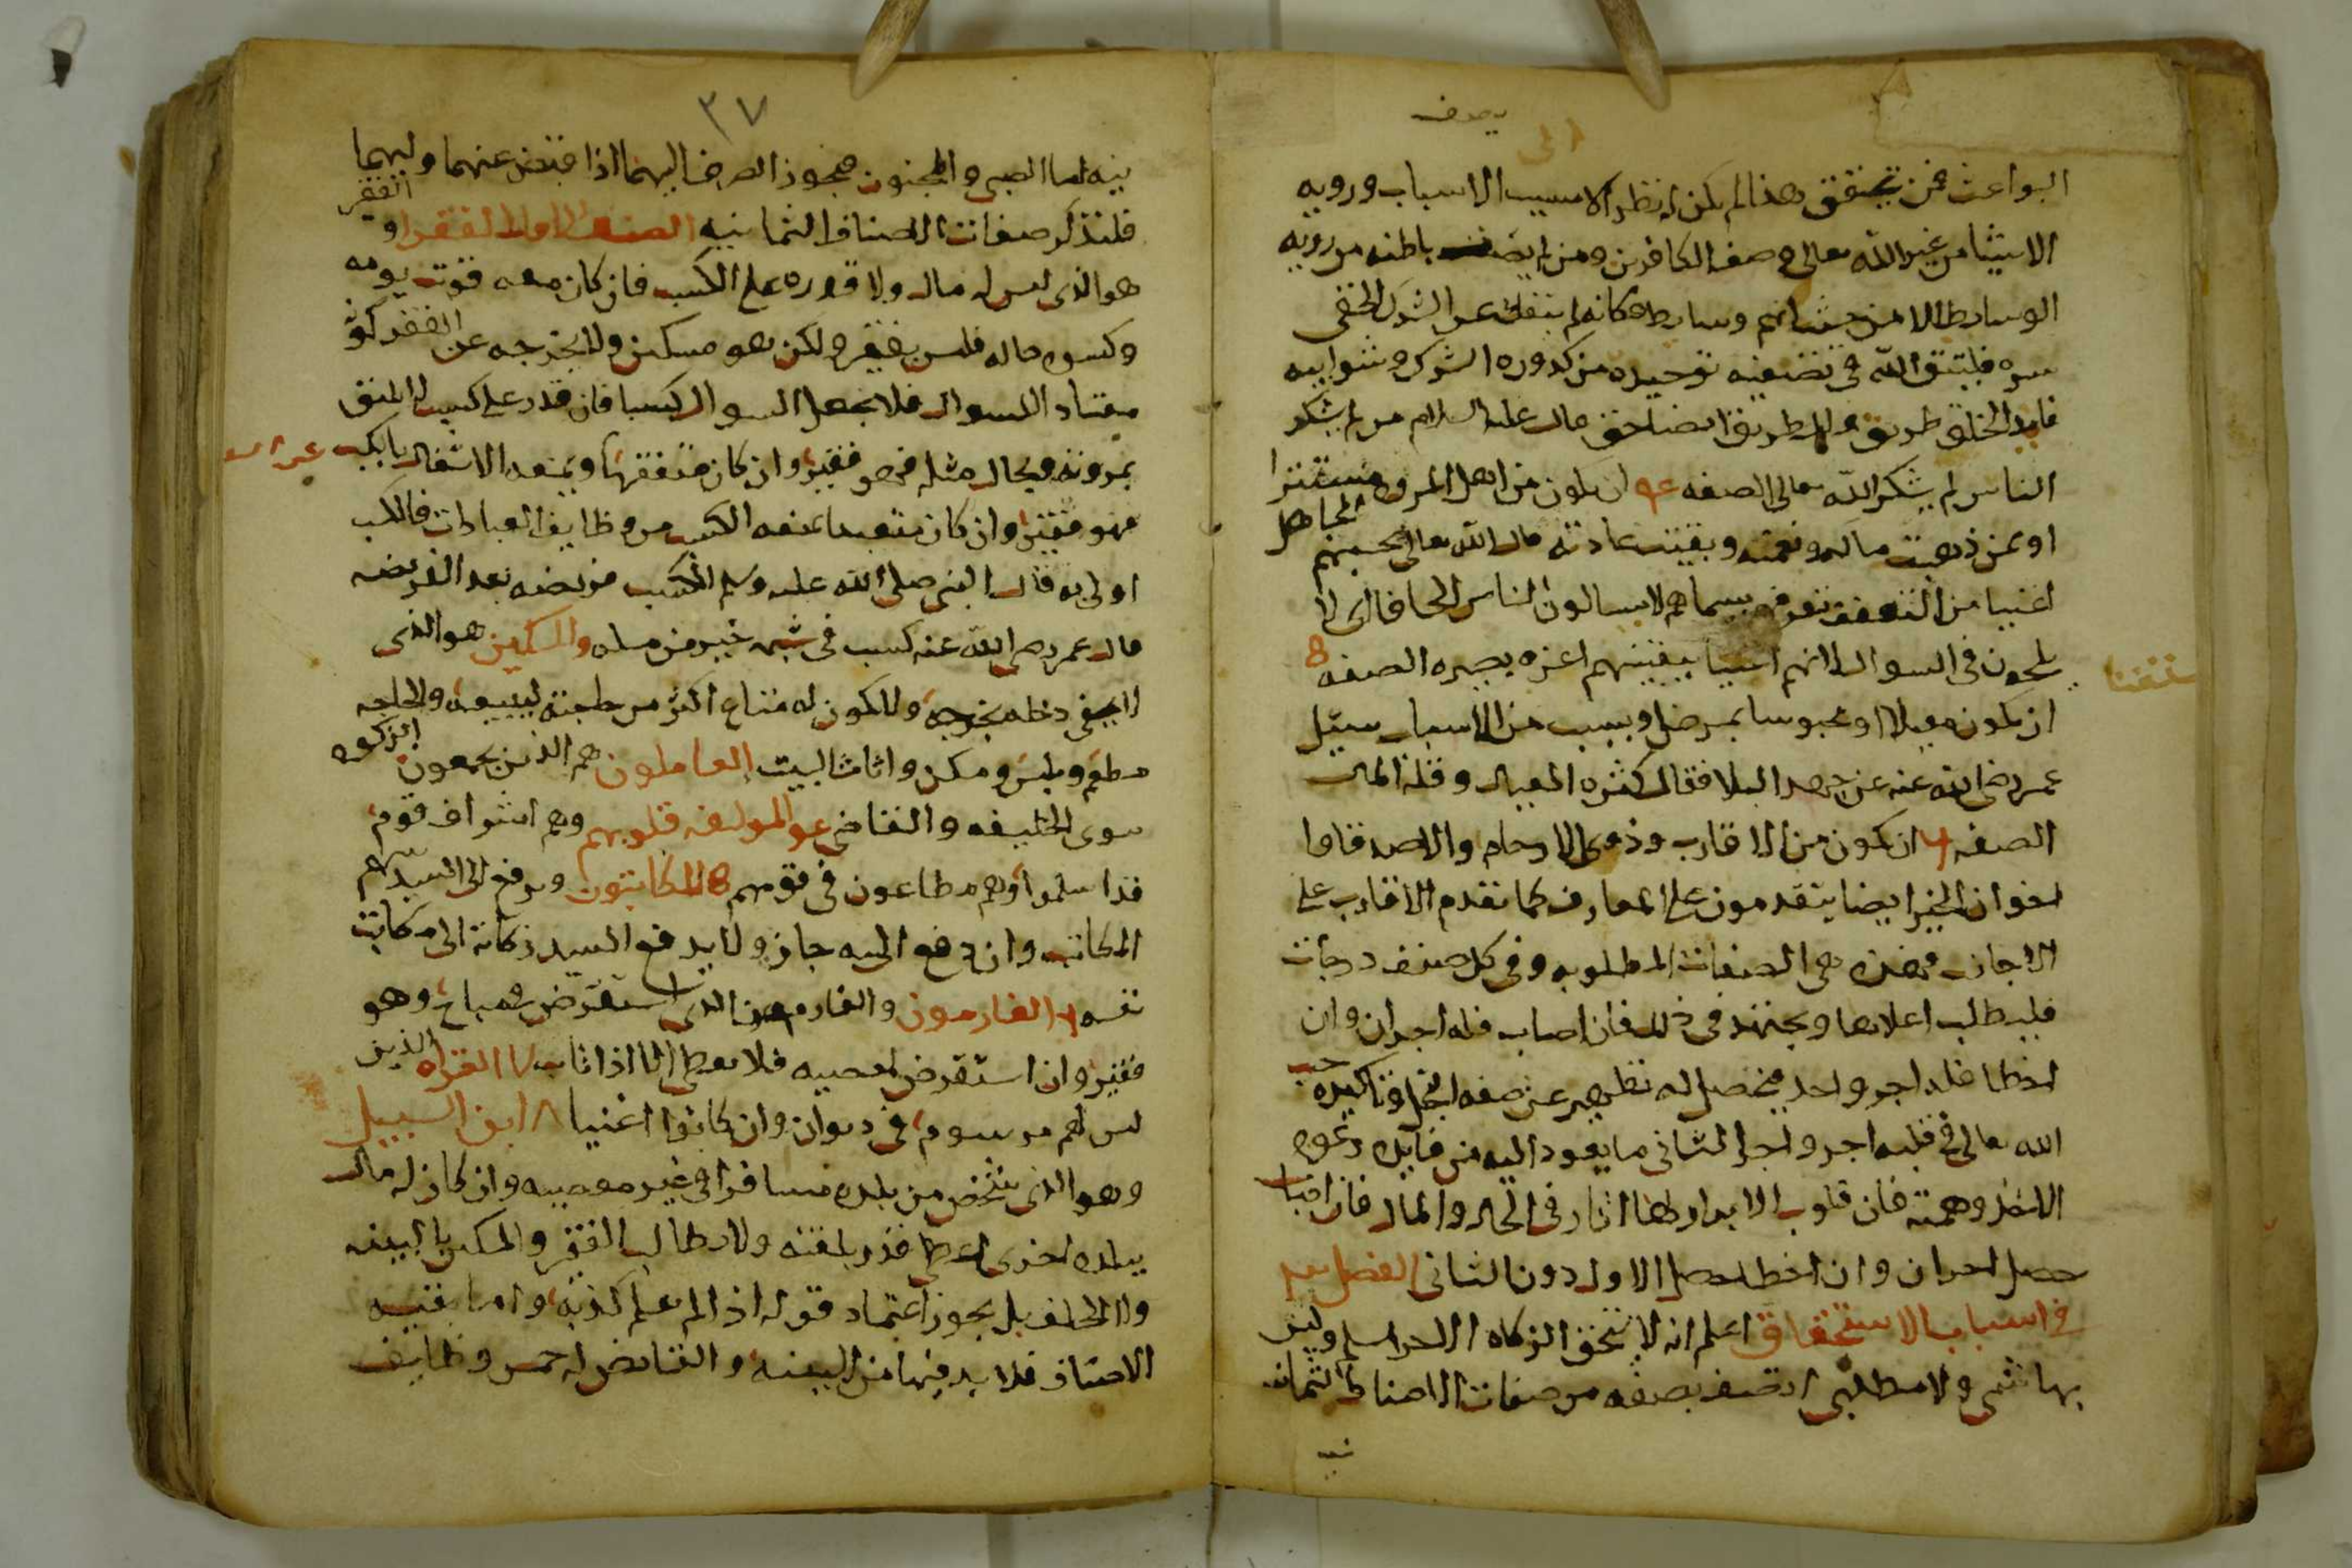 يصف
البواعث فمن تيقن هذا لم يكن له نظر الا لمسبب الاسباب ورويه
الاشيا من غير الله تعالى وصف الكافرين ومن لم يصف باطنه من رويه
الوسايط الا من حيث انهم وسايط فكانه لم ينفك عن الشرك الخفي
سره فليتق الله في تصفيه توحيده من كدوره الشرك وشوايبه
الناس لم يشكر الله تعالى الصفه ان يكون من اهل المروه مستترا
او ممن ذهبت ماله ونعمته وبقيت عادته قال الله تعالى يحسبهم الجاهل
اغنيا من التعفف تعرفهم بسيماهم لا يسالون الناس الحافا اى لا
يلحون في السوال لانهم اغنيا بيقينهم اعزه بصبره الصفه
ان يكون معيلا او محبوسا بمرض او بسبب من الاسباب سيل
عمر رضى الله عنه عن جهد البلا فقال كثره العيال وقله المال
الصفه ان يكون من الاقارب وذوى الارحام والاصدقا و
اخوان الخير ايضا يتقدمون على المعارف كما تقدم الاقارب على
الاجانب فهذه هى الصفات المطلوبه وفى كل صنف درجات
فليطلب اعلاها ويجتهد فى ذلك فان اصاب فله اجران وان
اخطا فله اجر واحد فيحصل له تطهير عن صفه البخل وتاكيد حب
الله تعالى فى قلبه اجر واجر الثانى ما يعود اليه من فايده دعوه
الاخذ وهمته فان قلوب الابرار لها اثار فى الحال والمال فان اصاب
حصل اجران وان اخطا حصل الاول دون الثانى الفصل
فى اسباب الاستحقاق اعلم انه لا يستحق الزكاه الا حر مسلم وليس
بهاشمى ولا مطلبى اتصف بصفه من صفات الاصناف الثمانيه
نيه
٣٧
نيه اما الصبى والمجنون فيجوز الصرف اليهما اذا قبض عنهما وليهما
فلنذكر صفات الاصناف الثمانيه الصنف الاول الفقرا و الفقير
هو الذى ليس له مال ولا قدره على الكسب فان كان معه قوت يومه
وكسوه حاله فليس بفقير ولكن هو مسكين ولا يخرجه عن الفقر كونه
معتاد السوال فلا يجعل السوال كسبا فان قدر على كسب لا يليق
بمروته وبحال مثله فهو فقير وان كان متفقها ويمنعه الاشتغال بالكسب
فهو فقير وان كان متعبدا يمنعه الكسب من وظايف العبادات فالكسب
اولى به قال النبى صلى الله عليه وسلم الكسب فريضه بعد الفريضه
قال عمر رضى الله عنه كسب فى شبهه خير من مسله والمسكين هو الذى
لا يفى دخله بخرجه ولا يكون له متاع اكثر من حاجته ليبيعه والحاجه
مطعم وملبس ومسكن واثاث البيت العاملون هم الذين يجمعون الزكوه
سوى الخليفه والقاضى والمولفه قلوبهم وهم اشراف قوم
قد اسلموا وهم مطاعون فى قومهم المكاتبون ويدفع الى السيد سهم
المكاتب وان دفع اليه جاز ولا يدفع السيد زكاته الى مكاتب
نفسه الغارمون والغارم هو الذى استقرض فى مباح وهو
فقير وان استقرض لمعصيه فلا يعطى الا اذا تاب ٧ الغزاه الذين
ليس لهم مرسوم فى ديوان وان كانوا اغنيا ٨ ابن السبيل
وهو الذى شخص من بلده مسافرا فى غير معصيه وان كان له مال
ببلده اخرى اعطى قدر بلغته ولا يطالب الفقير والمسكين بالبينه
ولا الحلف بل يجوز اعتماد قوله اذا لم يعلم كذبه واما بقيه
الاصناف فلا بد فيها من البينه والقابض له خمس وظايف